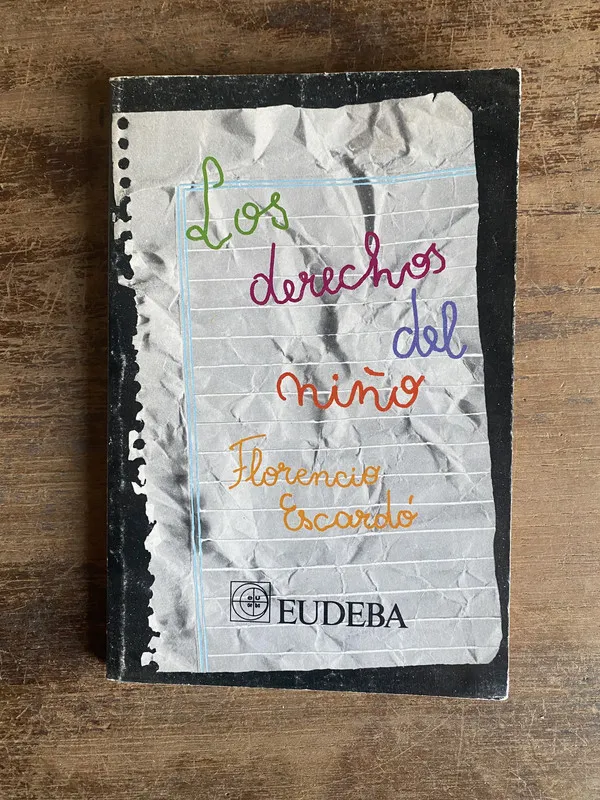 Los
derechos
del
niño
Florencio
Escardó
EUDEBA